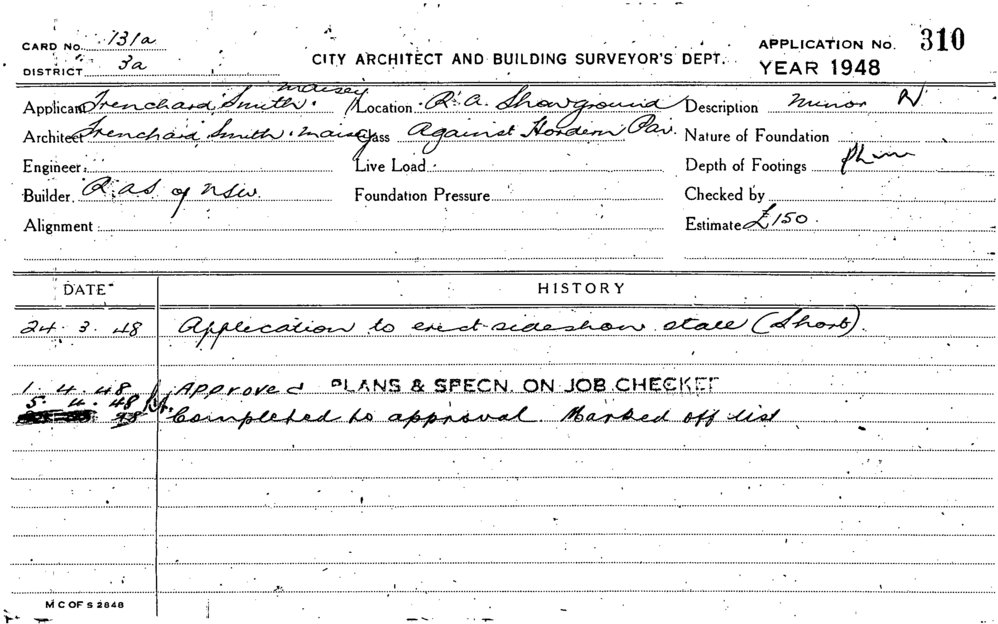 CARD No. 131a
DISTRICT 3a
CITY ARCHITECT AND BUILDING SURVEYOR'S DEPT.
APPLICATION No. 310
YEAR 1948
Applicant Trenchard Smith. Maisey
Location R. A. Showground
Description Minor N
Architect Trenchard Smith. Maisey
Class Against Hordern Pav.
Nature of Foundation
Engineer
Live Load
Depth of Footings
Builder. R. A. S. of NSW.
Foundation Pressure
Checked by
Alignment
Estimate £150.
DATE HISTORY
24. 3. 48 Application to erect sideshow stall (Short).
1. 4. 48 Approved PLANS & SPECN. ON JOB CHECKED
5. 4. 48
Completed to approval. Marked off list
M C OF S 2848